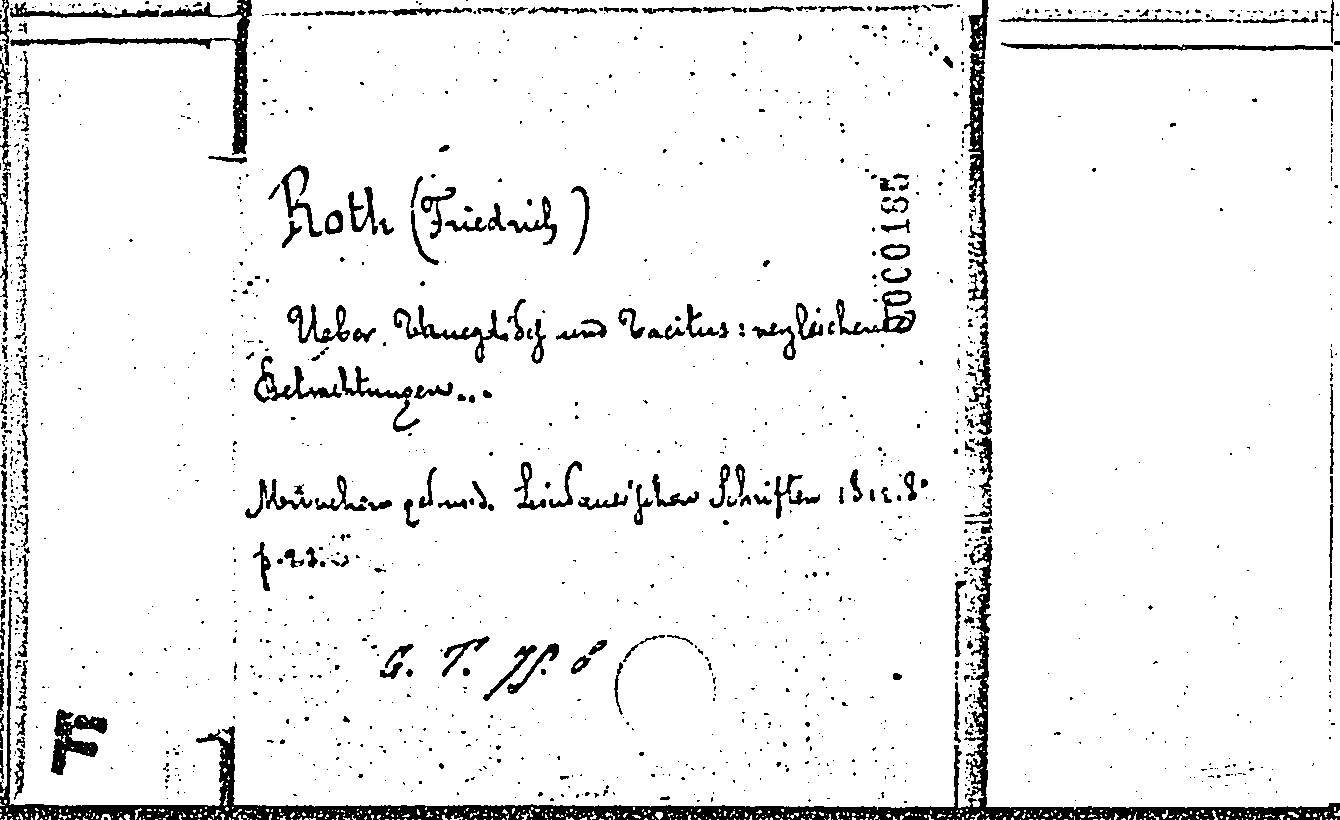 Roth (Friedrich)
Ueber Thucydides und Tacitus: vergleichende
Betrachtungen...
München gedruckt. Lindauerischen Schriften 1812. 8º
p. 23.
G. T. 8
0000185
F